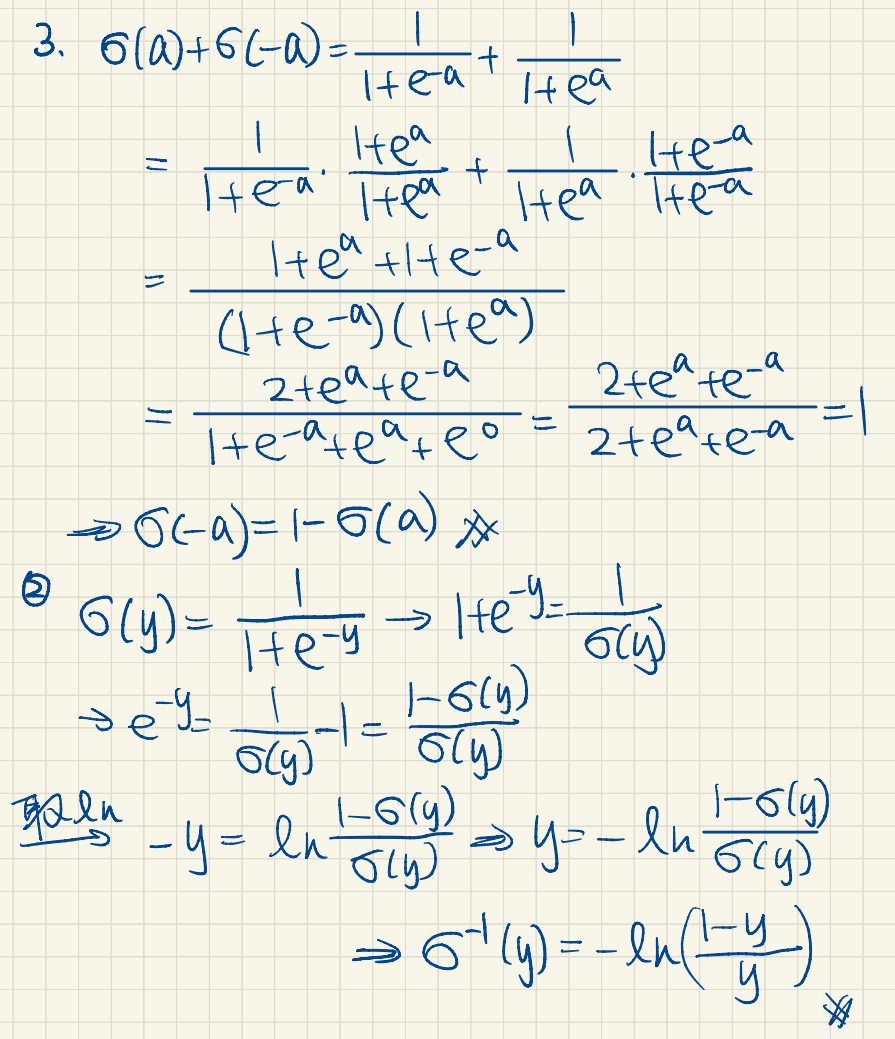 3. σ(a)+σ(-a)= 1/(1+e^-a) + 1/(1+e^a)
= 1/(1+e^-a) · (1+e^a)/(1+e^a) + 1/(1+e^a) · (1+e^-a)/(1+e^-a)
= (1+e^a+1+e^-a)/((1+e^-a)(1+e^a))
= (2+e^a+e^-a)/(1+e^-a+e^a+e^0) = (2+e^a+e^-a)/(2+e^a+e^-a) = 1
⇒ σ(-a)=1-σ(a)
② σ(y)= 1/(1+e^-y) → 1+e^-y= 1/σ(y)
→ e^-y= 1/σ(y) -1 = (1-σ(y))/σ(y)
取ln → -y= ln (1-σ(y))/σ(y) ⇒ y= -ln (1-σ(y))/σ(y)
⇒ σ^-1(y)= -ln((1-y)/y)